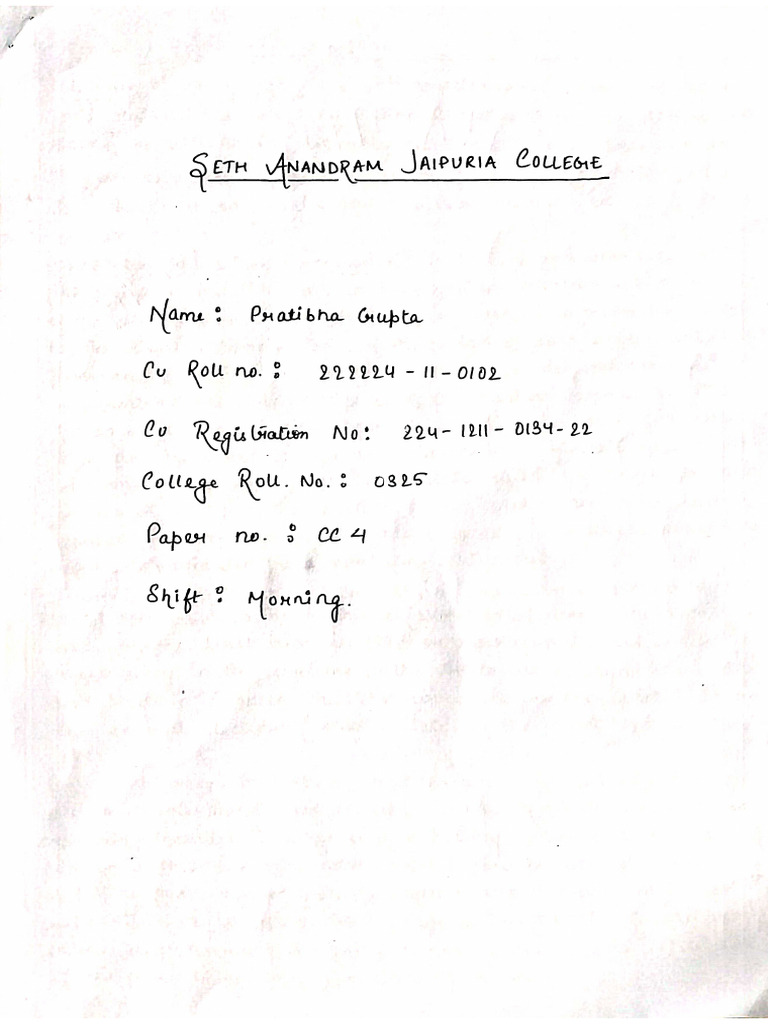 SETH ANANDRAM JAIPURIA COLLEGE
Name: Pratibha Gupta
CU Roll no.: 222224-11-0102
CU Registration No: 224-1211-0134-22
College Roll. No.: 0325
Paper no.: CC 4
Shift: Morning.